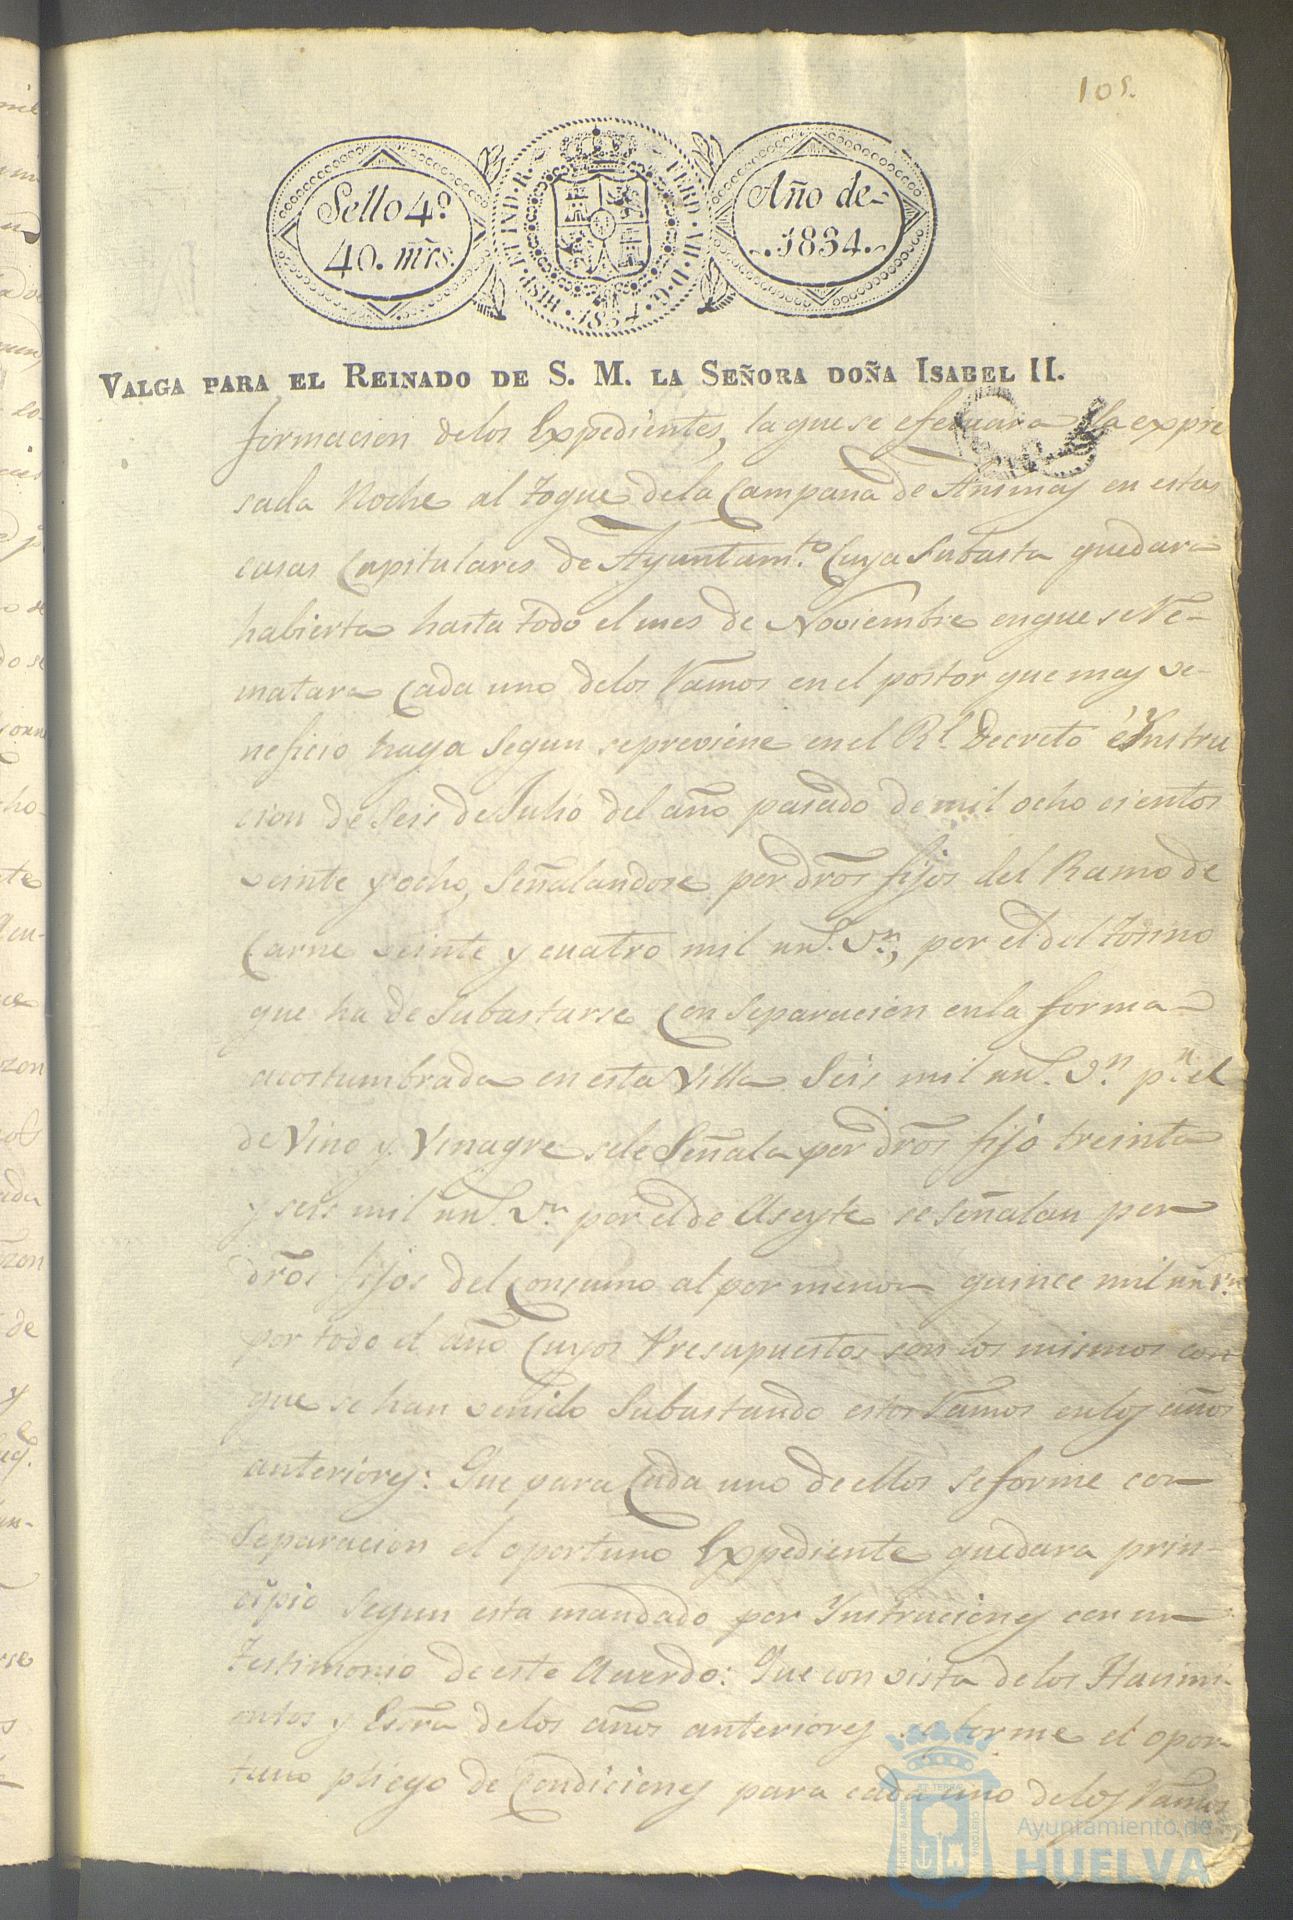 105.
Sello 4º
40. mrs.
HISP. ET IND. R.
FERD. VII. D. G.
1834
Año de
1834.
VALGA PARA EL REINADO DE S. M. LA SEÑORA DOÑA ISABEL II.
formacion delos Expedientes, la que se efectuara la expre
sada Noche al toque dela Campana de Animas en estas
casas Capitulares de Ayuntamto. Cuya Subasta quedara
habierta hasta todo el mes de Noviembre enque se Re-
matara Cada uno delos Ramos en el postor que mas ve-
neficio haga segun sepreviene en el Rl. Decreto é Ynstru
cion de Seis de Julio del año pasado de mil ocho cientos
veinte y ocho, Señalandose por dros fijos del Ramo de
Carne veinte y cuatro mil rrs. vn., por el del Tosino
que ha de Subastarse Con Separacion en la forma
acostumbrada en esta Villa Seis mil rrs. vn. pr. el
de Vino y Vinagre sele Señala por dros fijo treinta
y seis mil rrs. vn. por el de Aseyte se señalan por
dros fijos del Consumo al por menor quince mil rrs vn
por todo el año Cuyos Presupuestos son los mismos con
que se han venido Subastando estos Ramos enlos años
anteriores: Que para Cada uno de ellos se forme con
Separacion el oportuno Expediente quedara prin-
cipio segun esta mandado por Ynstruciones con un
Testimonio de este Acuerdo: Que con vista de los Hacimi-
entos y Essra delos años anteriores se forme el opor-
tuno pliego de Condiciones para cada uno delos Ramos
Ayuntamiento de
HUELVA